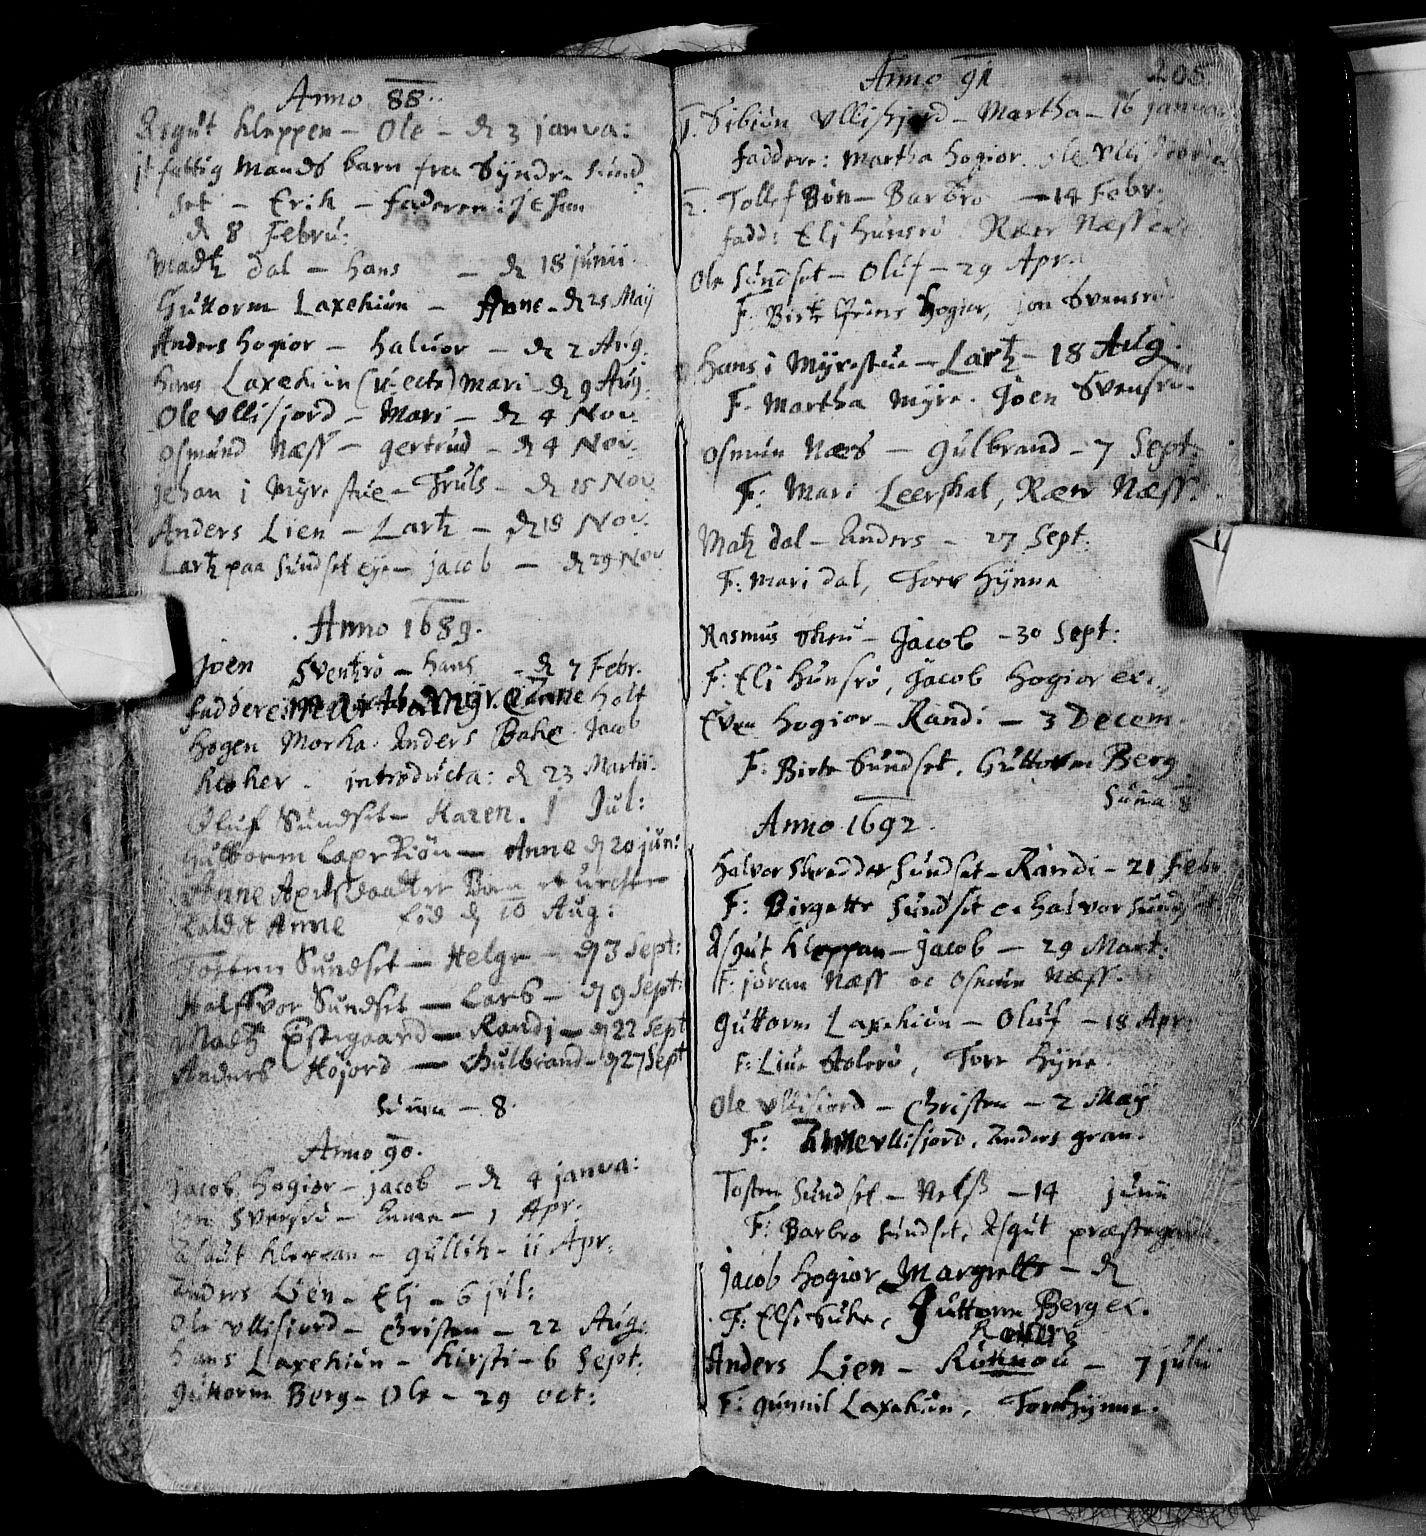 Anno 88.
Asgut Kleppen – Ole – d 3 janua:
it fattig Mands barn fra Syndre Sund
set – Erik – faderen: Jehan
d 8 Febru:
Madtz dal – Hans – d 18 junii
Guttorm Laxekiün – Anne – d 25 Maij
Anders Hogior – Haluor – d 2 Aug.
Hans Laxekiün (u-ecte) Mari – d 9 Aug.
Ole Ullisjord – Mari – d 4 Nov
Osmünd Næss – gertrud – d 4 Nov.
Jehan i Myre stue – Truls – d 15 Nov
Anders Lien – Lartz – d 18 Nov.
Lartz paa Sündset eye – jacob – d 29 Nov
Anno 1689.
joen Sventzrö – Hans – d 7 Febr.
faddere Martha Myre Anne Holt
Hogen Morka. Anders Bake. Jacob
Kloker. introducta: d 23 Martii.
Oluf Sündset – Karen. 1 Jul:
Guttorm Laxekiön – Anne d 20 jun:
Anne Axelsdaatter Barn
kaldet Anne fød d 10 Aug:
Tosten Sündset – Helge – d 3 Sept:
Halffvor Sündset – Lars – d 9 Sept:
Madtz Østegaard – Randj – d 22 Sept
Anders Höjord – Gulbrand – d 27 Sept
Suma – 8.
Anno 90.
Jacob Hogior – jacob – d 4 janua:
jon Svensrö – Anna – 1 Apr.
Asgut Kleppan – gullik – 11 Apr.
Anders Lien – Elj – 6 jul:
Ole Ullisiord – Christen – 22 Aug:
Hans Laxekiün – Kirsti – 6 Sept.
Guttorm Berg – Ole – 29 oct:
Anno 91
205
1. Sibiön Ullisjord – Martha – 16 janua
faddere: Martha Hogior. Ole
2. Tollef Bön – Barbro – 14 Febr.
fadd: Elj Hunsrö. Næss
Ole Sündset – Oluf – 29 Apr.
F. Hogior, jon Svensrö
Hans i Myrestue – Lartz – 18 Aug.
F. Martha Myre. Joen Svensrö
Osmün Næss – Gulbrand – 7 Sept:
F: Mari Leerskal, Næss.
Matz dal – Anders – 27 Sept:
F: Mari dal, Tore Hÿnne
Rasmus – Jacob – 30 Sept:
F: Eli Hünsrö, Jacob Hogior
Even Hogior – Randi – 3 Decem.
F: Birte Sündset. Guttorm Berg
Suma 8
Anno 1692.
Halvor Skredder Sündset – Randi – 21 Febr
F: Birgette Sündset oc Halvor Sündset
Asgut Kleppan – jacob – 29 Mart:
F: jöran Næss oc Osmün Næss.
Guttorm Laxekiün – Oluf – 18 Apr:
F: Live Stolerö, Tore Hÿne
Ole Ullisiord – Christen – 2 Maÿ
F: Anne Ullisjord. Anders gran.
Tosten Sündset – Nelss – 14 junii
F: Barbro Sündset. Asgut
Jacob Hogior Margrette – d
F: Else Guttorm Berg
Anders Lien – – 7 julii
F: gunnil Laxekiün, Tore Hÿnne.